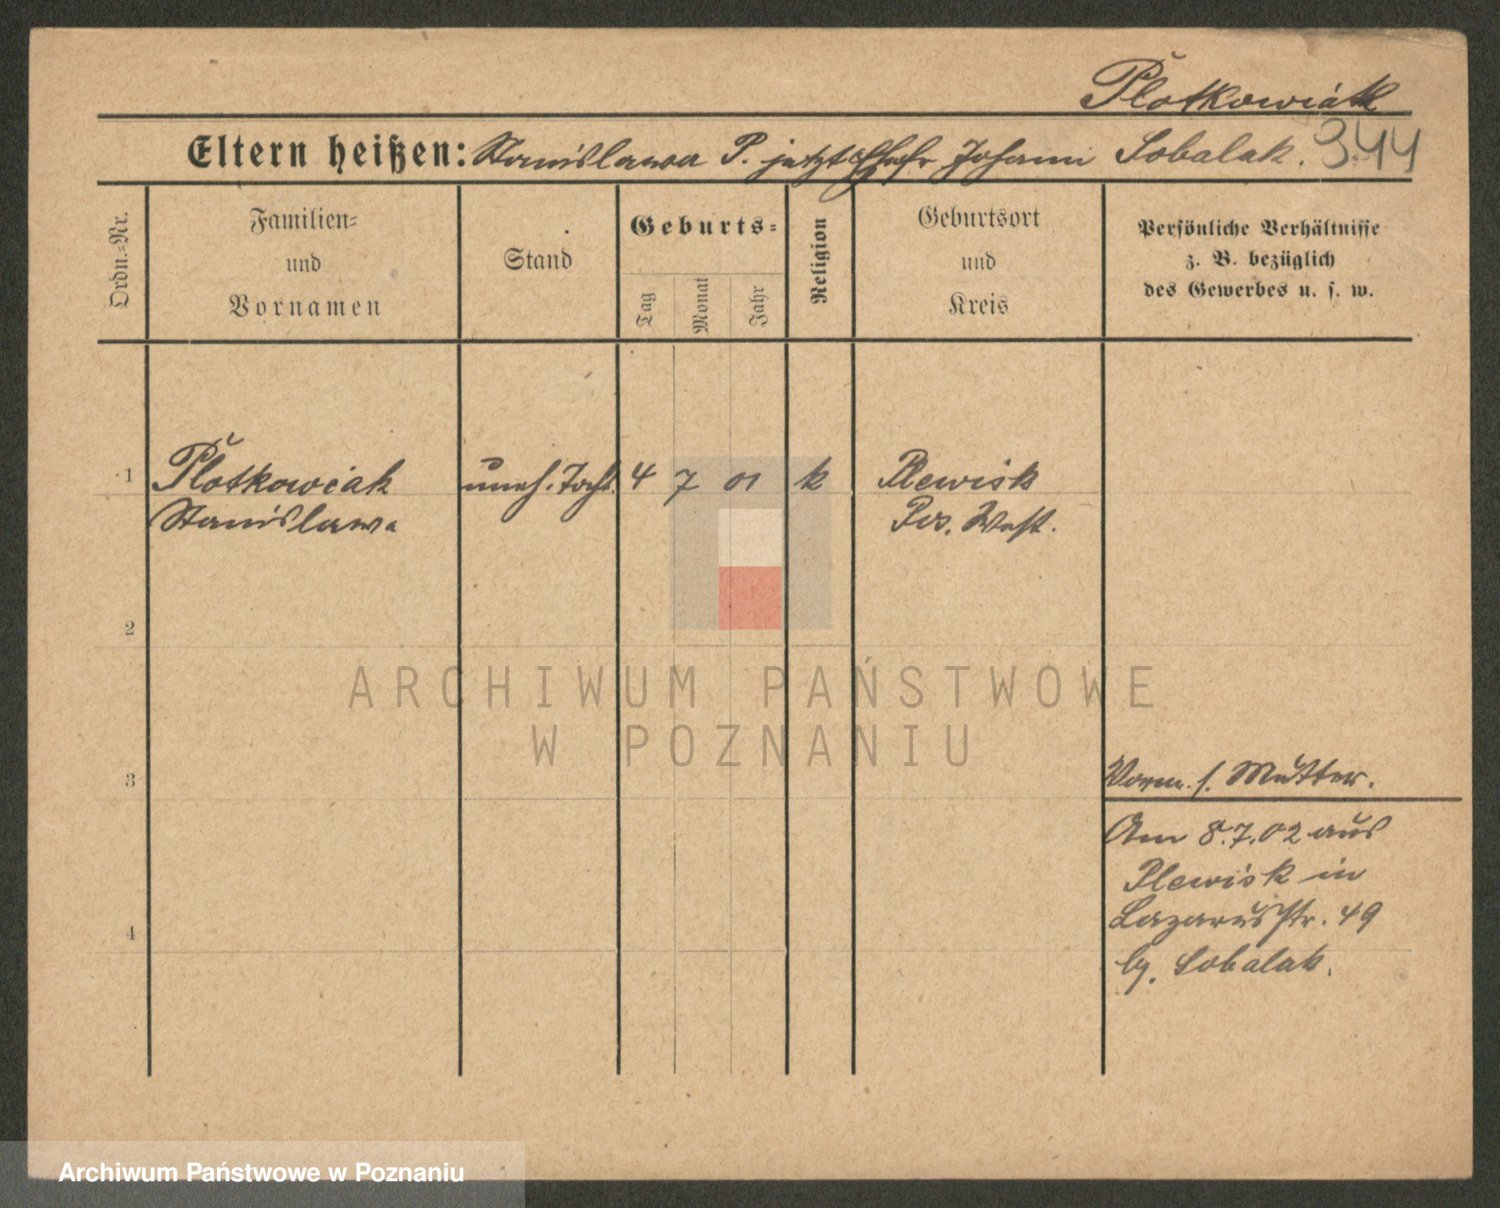 Plotkowiak
344
Eltern heißen: Stanislawa P. jetzt Ehefr Johann Sobalak.
Ordn.-Nr.
Familien-
und
Vornamen
Stand
Geburts-
Tag
Monat
Jahr
Religion
Geburtsort
und
Kreis
Persönliche Verhältnisse
z. B. bezüglich
des Gewerbes u. s. w.
1 Plotkowiak uneh. Tocht. 4 7 01 k Plewisk
Stanislawa Pos. West.
2
3
Vorm. s. Mutter.
Am 8.7.02 aus
Plewisk in
Lazarusstr. 49
4
bg. Sobalak.
ARCHIWUM PAŃSTWOWE
W POZNANIU
Archiwum Państwowe w Poznaniu